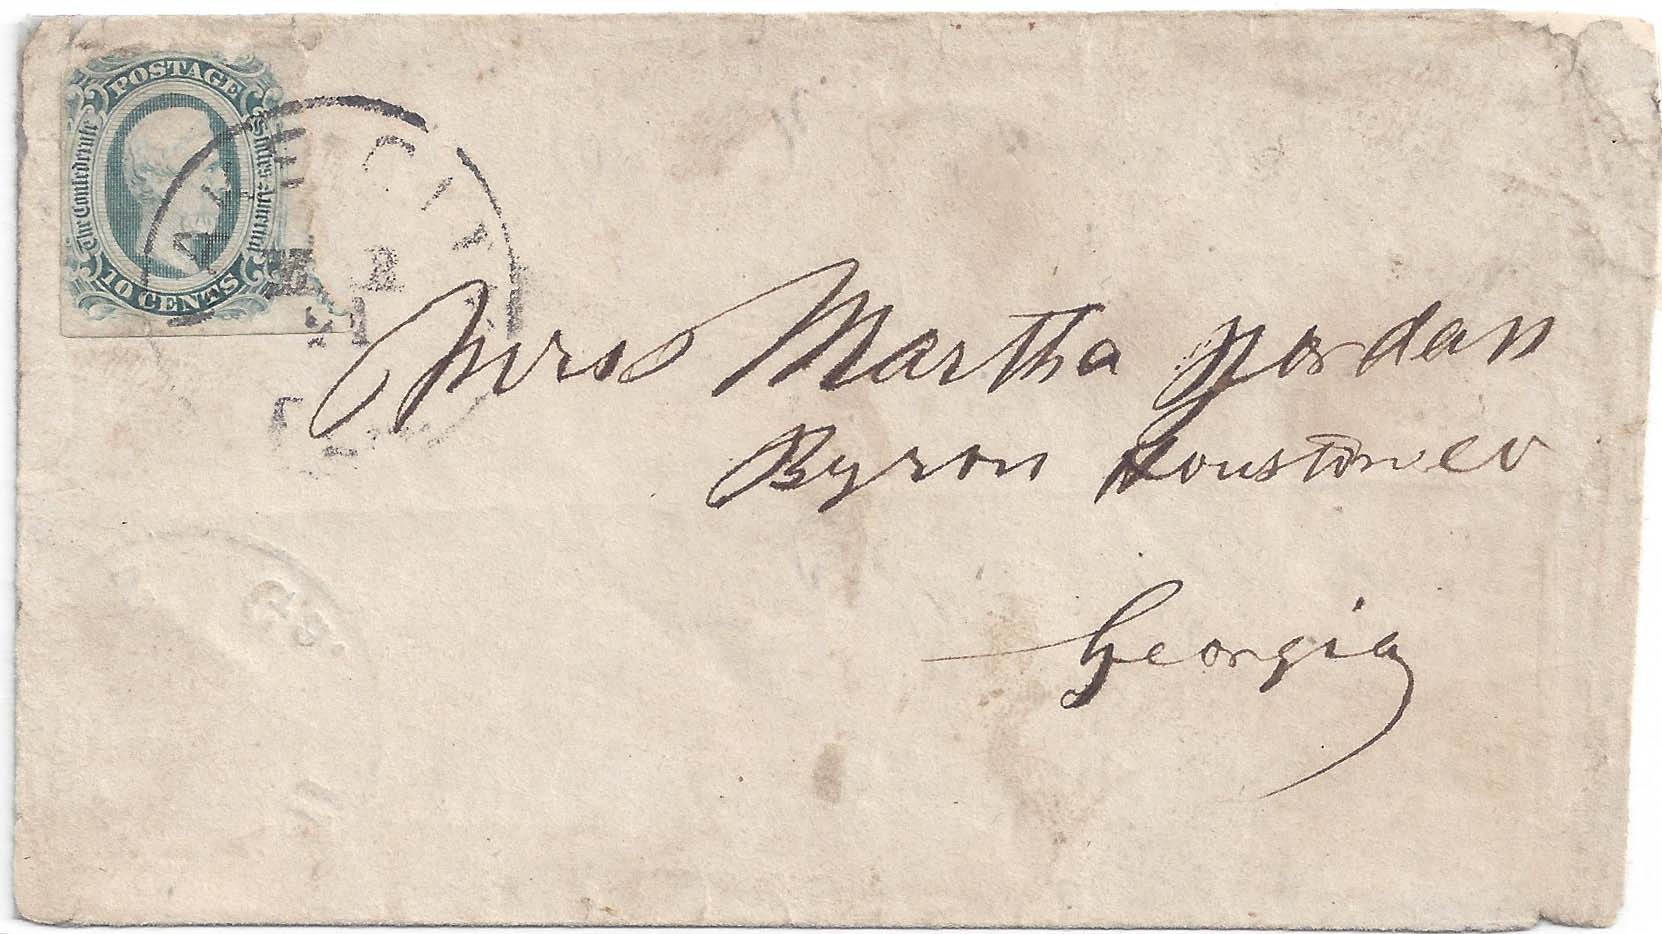 POSTAGE
The Confederate States of America
10 CENTS
LAKE CITY
21
Mrss Martha Jordan
Byron Houston co
Georgia